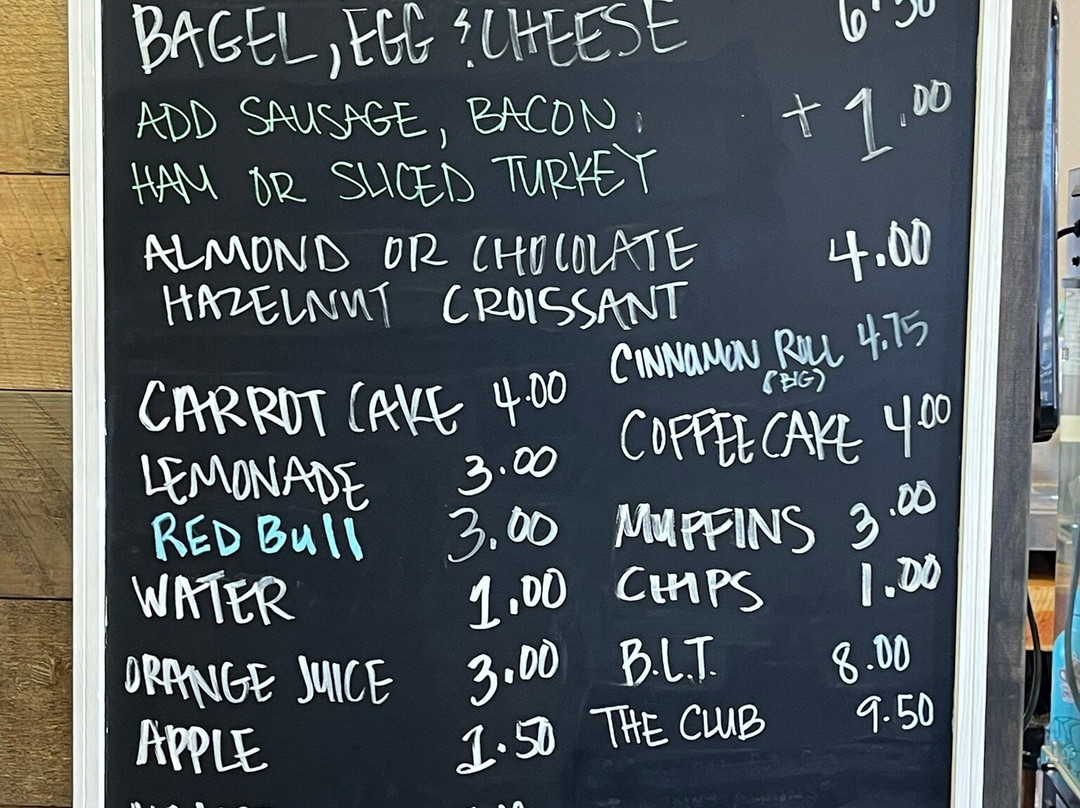 BAGEL, EGG & CHEESE 6.50
ADD SAUSAGE, BACON, + 1.00
HAM OR SLICED TURKEY
ALMOND OR CHOCOLATE 4.00
HAZELNUT CROISSANT
CINNAMON ROLL 4.75
(BIG)
CARROT CAKE 4.00
COFFEE CAKE 4.00
LEMONADE 3.00
RED Bull 3.00
MUFFINS 3.00
WATER 1.00
CHIPS 1.00
ORANGE JUICE 3.00
B.L.T. 8.00
APPLE 1.50
THE CLUB 9.50